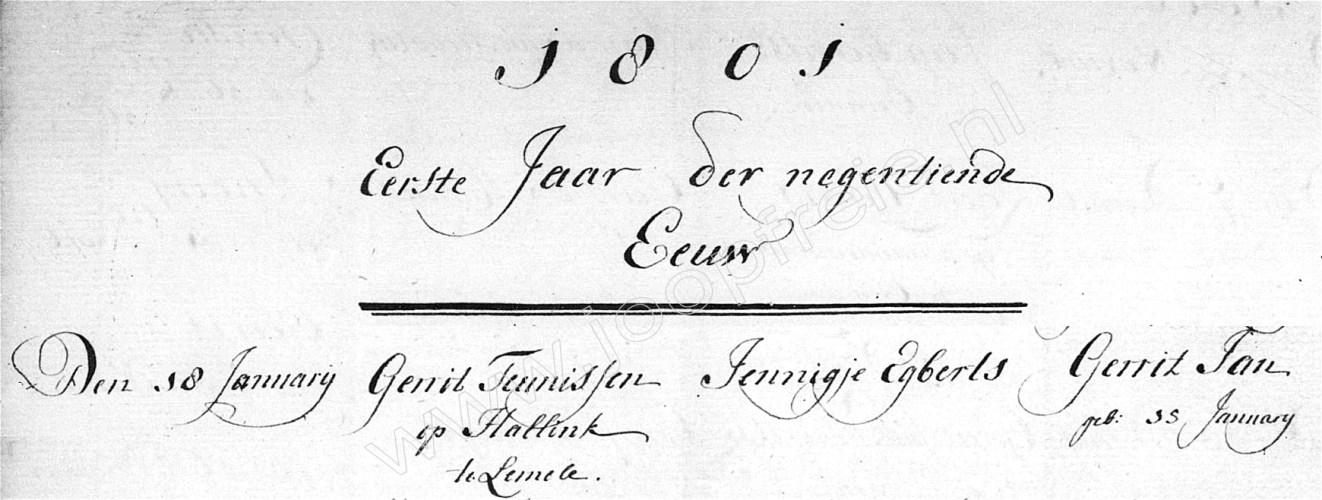 1801
Eerste Jaar der negentiende
Eeuw
Den 18 January Gerrit Teunissen Jennigje Egberts Gerrit Jan
op Hallink geb: 11 January
te Lemele.
www.joopfreie.nl